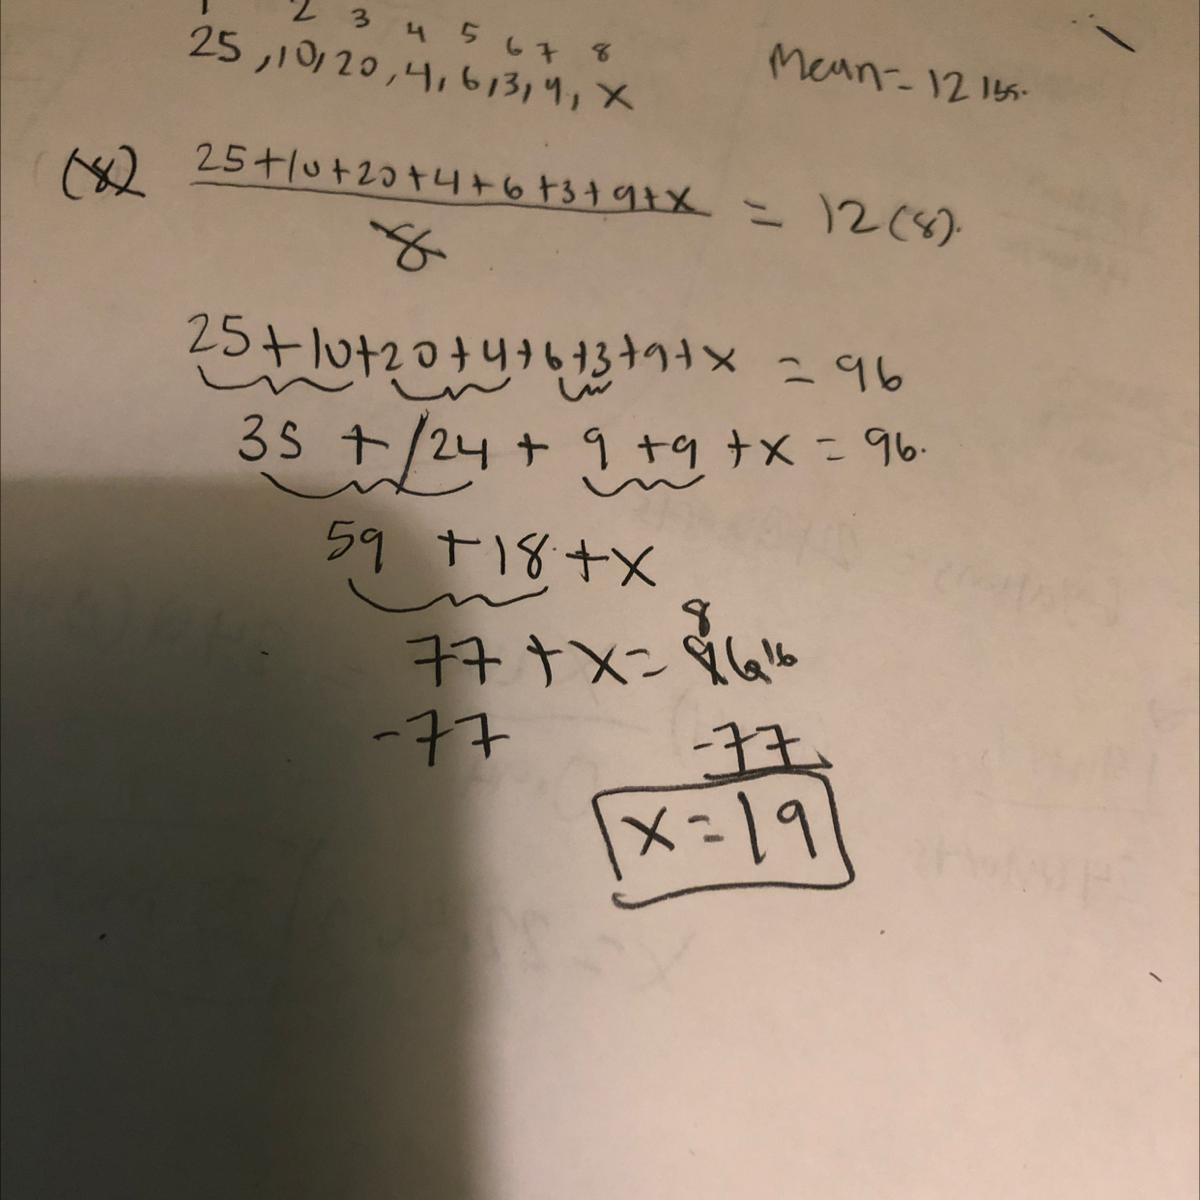 1 2 3 4 5 6 7 8
25, 10, 20, 4, 6, 3, 9, x Mean = 12 lbs.
(8) 25+10+20+4+6+3+9+x = 12(8).
8
25+10+20+4+6+3+9+x = 96
35 + 24 + 9 + 9 + x = 96.
59 + 18 + x
8
77 + x = 96 16
-77 -77
x = 19